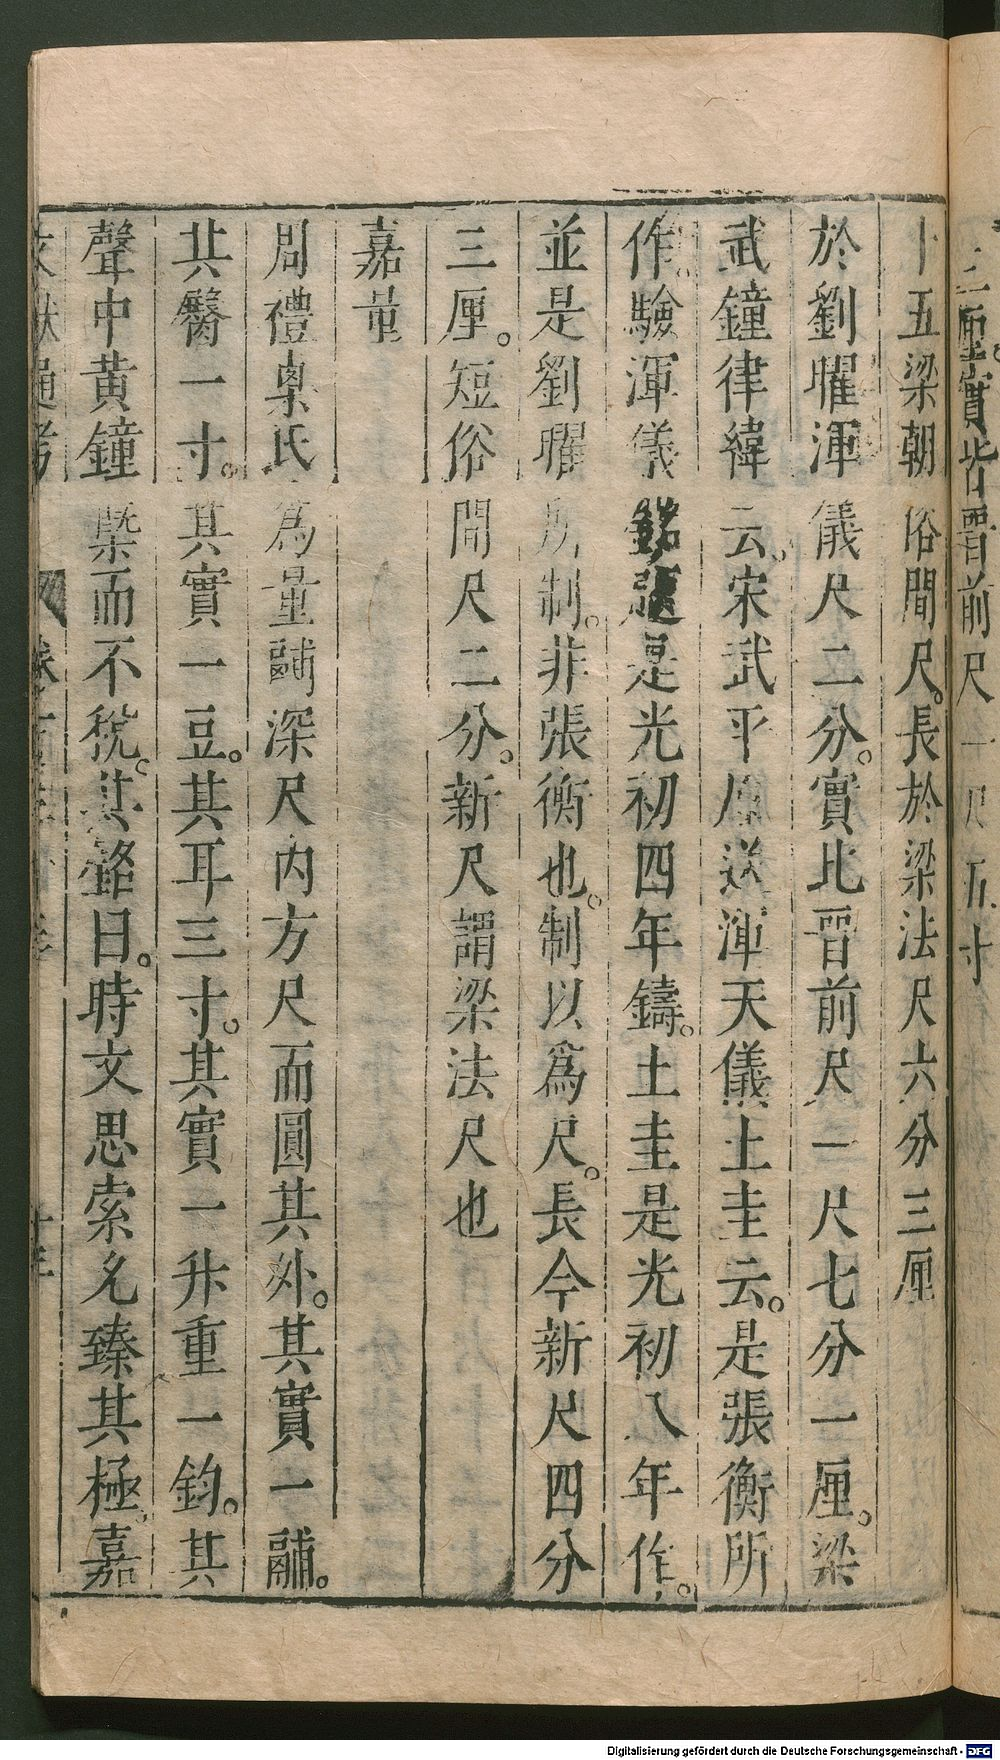 三厘實皆晉前尺一尺五寸
十五梁朝俗間尺。長於梁法尺六分三厘
於劉曜渾儀尺二分。實比晉前尺一尺七分一厘。梁
武鐘律緯云。宋武平原送渾天儀土圭云。是張衡所
作。驗渾儀銘題是光初四年鑄。土圭是光初八年作。
並是劉曜所制。非張衡也。制以爲尺。長今新尺四分
三厘。短俗間尺二分。新尺謂梁法尺也
嘉量
周禮㮚氏爲量鬴深尺內方尺而圓其外。其實一鬴。
其臀一寸。其實一豆。其耳三寸。其實一升重一鈞。其
聲中黄鐘槩而不稅。其銘曰。時文思索允臻其極。嘉
文獻通考
Digitalisierung gefördert durch die Deutsche Forschungsgemeinschaft - DFG